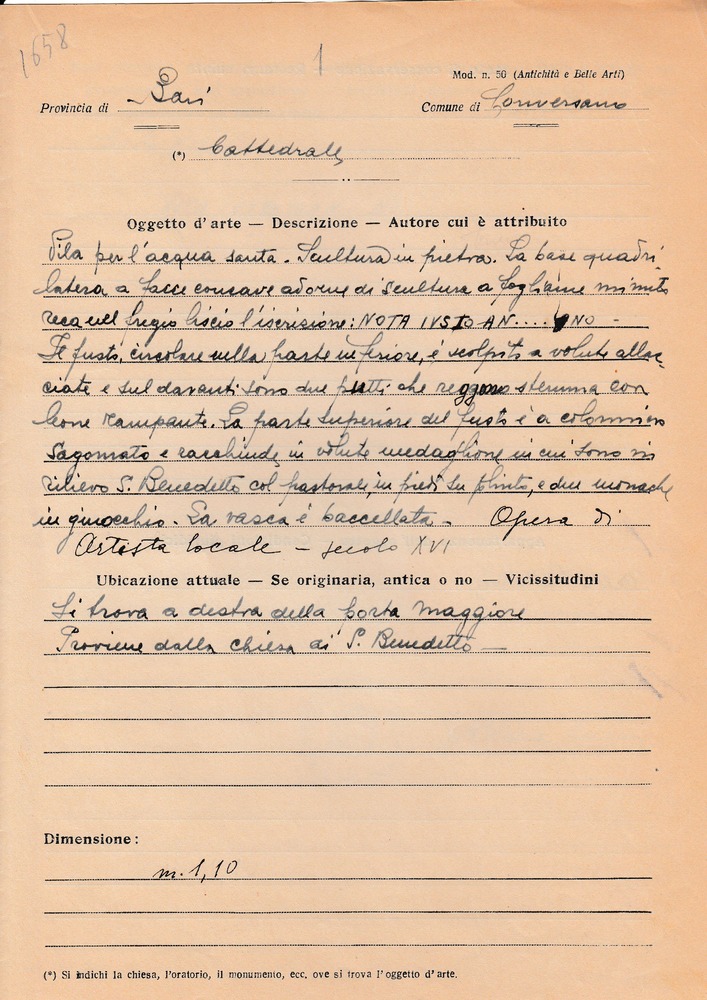 1658
1
Mod. n. 50 (Antichità e Belle Arti)
Provincia di Bari Comune di Conversano
(*) Cattedrale
Oggetto d'arte — Descrizione — Autore cui è attribuito
Pila per l'acqua santa. Scultura in pietra. La base quadri
latera a facce concave adorne di scultura a fogliame minuto
reca nel fregio liscio l'iscrizione: NOTA IVSTO AN.... NO -
Il fusto, circolare nella parte inferiore, è scolpito a volute allac
ciate e sul davanti sono due putti che reggono stemma con
leone rampante. La parte superiore del fusto è a colonnino
sagomato e racchiude in volute medaglione in cui sono in
rilievo S. Benedetto col pastorale, in piedi su plinto, e due monache
in ginocchio. La vasca è baccellata. Opera di
Artista locale - secolo XVI
Ubicazione attuale — Se originaria, antica o no — Vicissitudini
Si trova a destra della Porta Maggiore
Proviene dalla chiesa di S. Benedetto —
Dimensione:
m. 1,10
(*) Si indichi la chiesa, l'oratorio, il monumento, ecc. ove si trova l'oggetto d'arte.